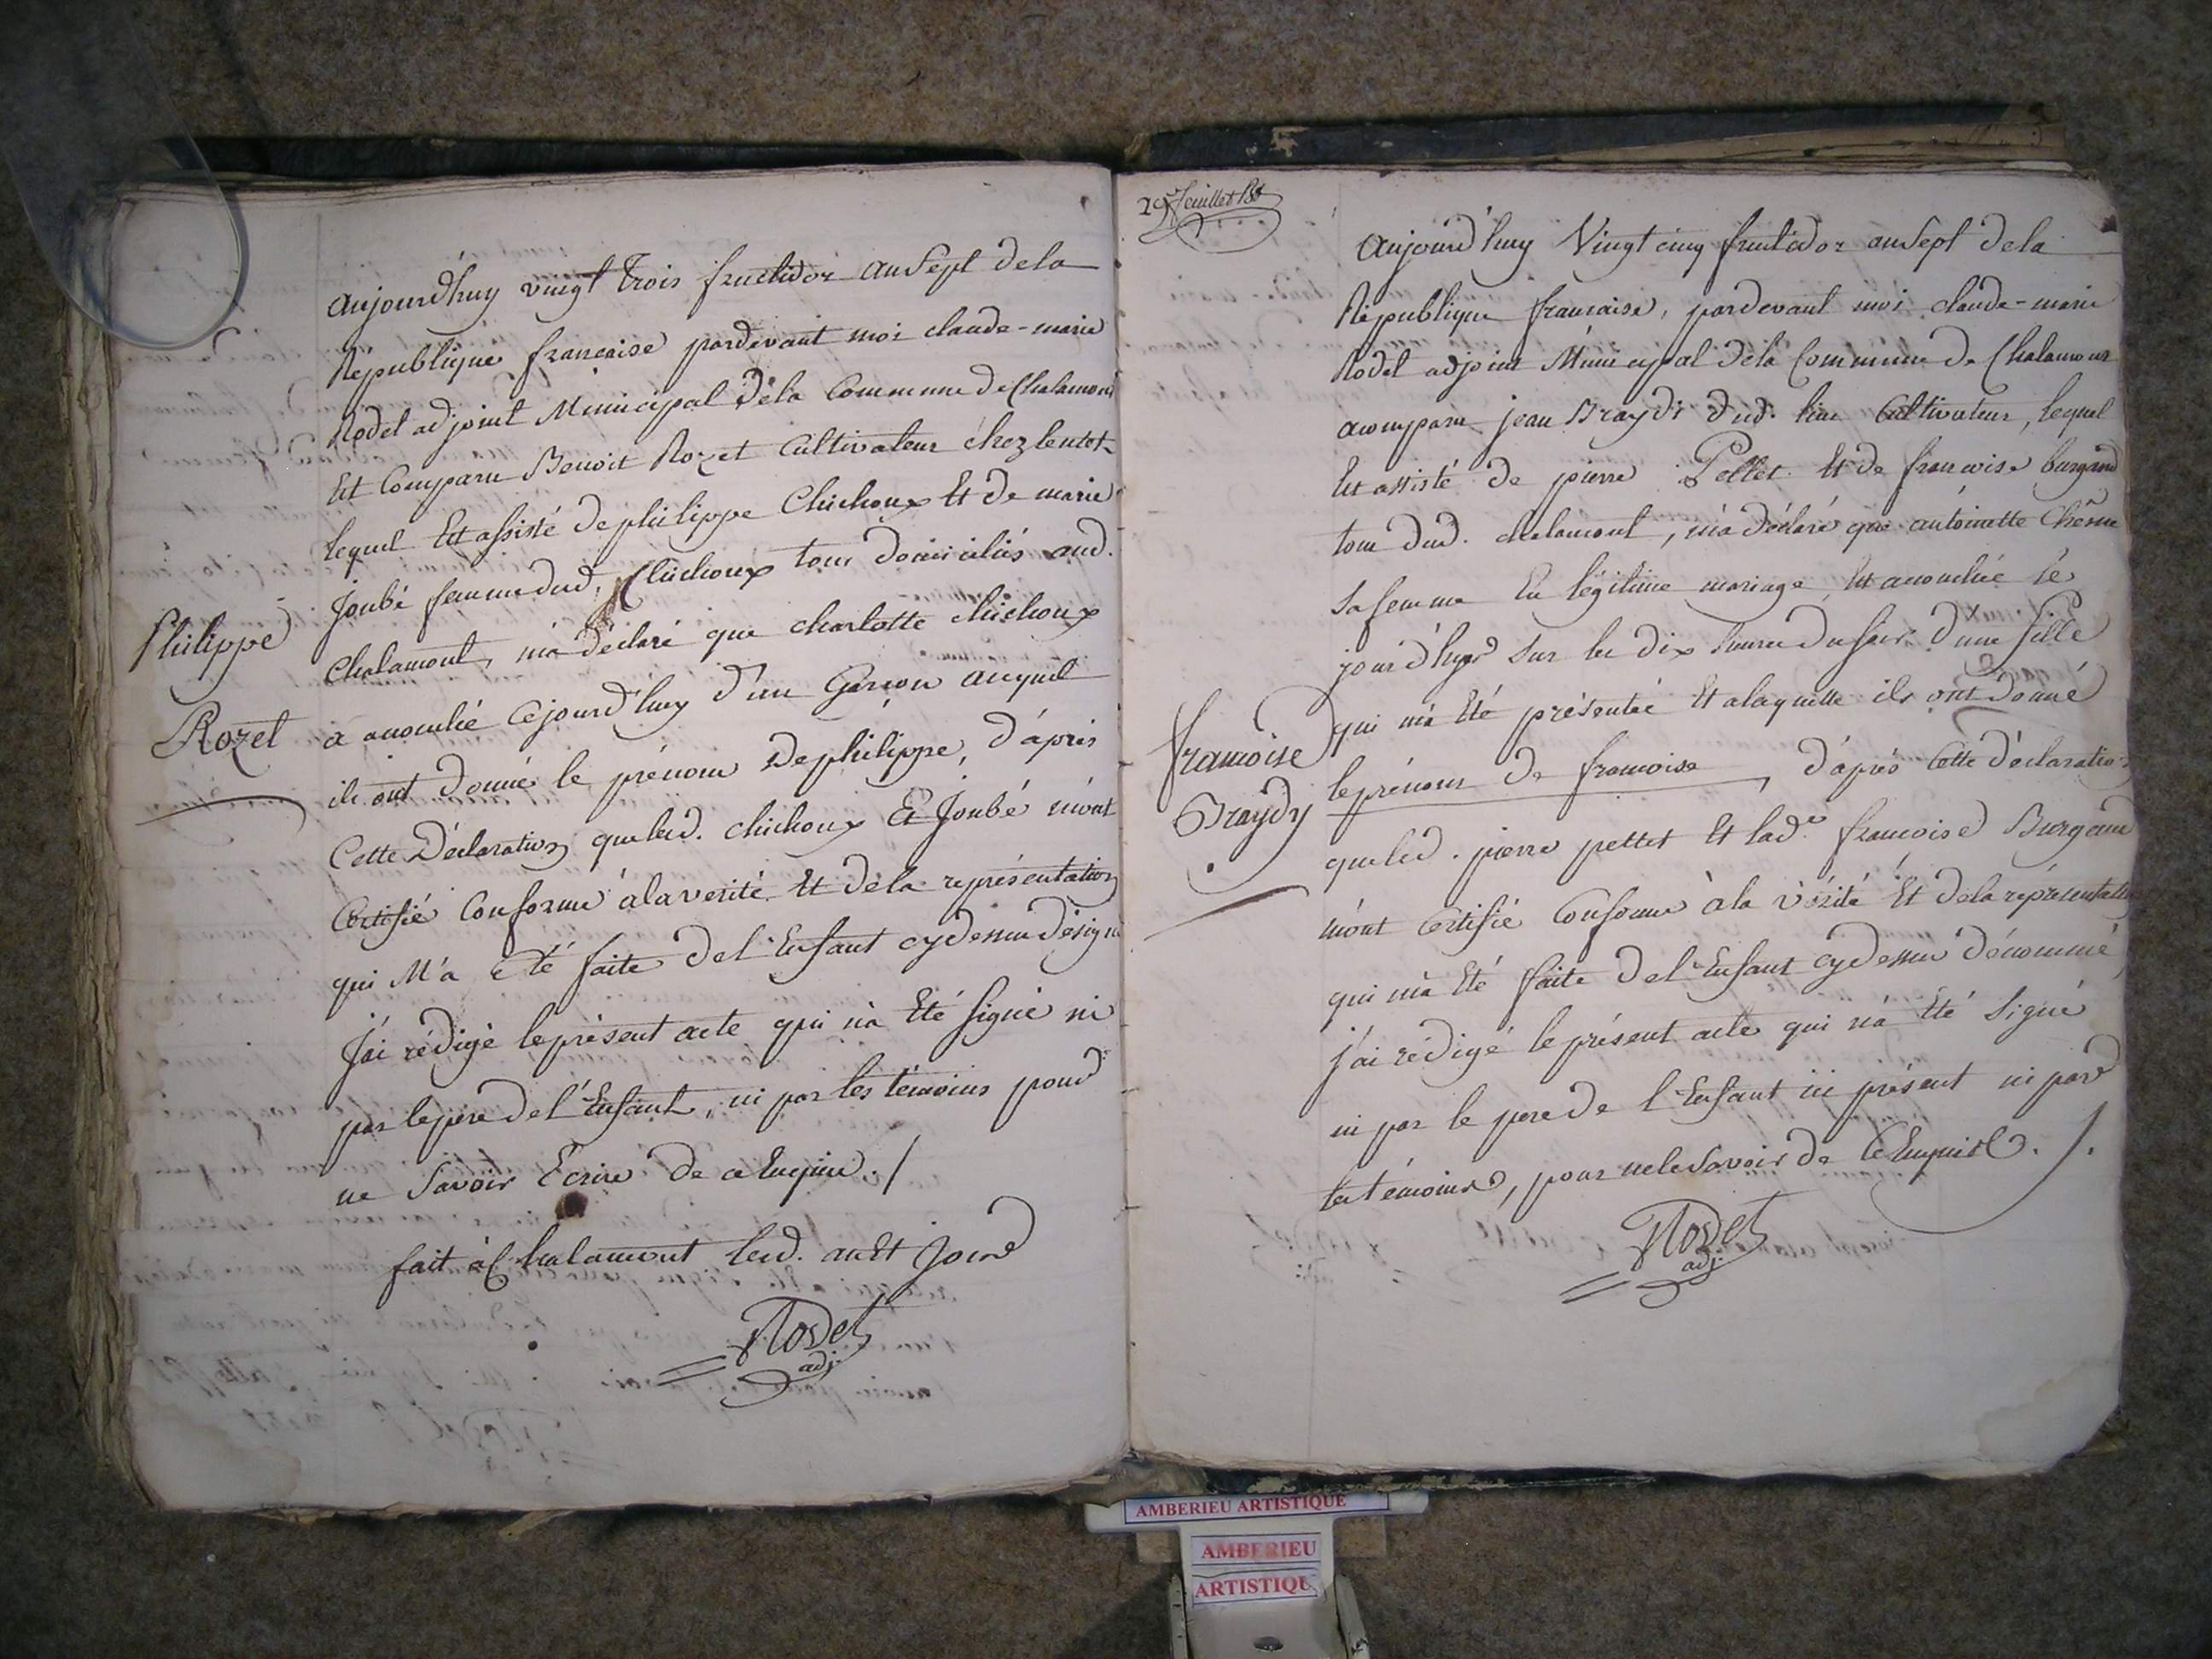 aujourd'huy vingt trois fructidor an Sept de la
République française pardevant moi claude-marie
Rodet adjoint Municipal de la Commune de Chalamont
Est Comparu Benoit Rozet Cultivateur chez lentot
lequel Est assisté de philippe Chichoux Et de marie
Joubé femme dud. Chichoux tous domiciliés aud.
Chalamont, m'a déclaré que charlotte chichoux
Philippe
Rozet
a accouchée cejourd'huy d'un Garçon auquel
ils ont donné le prénom de philippe, d'après
Cette Déclaration que led. chichoux Et Joubé m'ont
Certifié Conforme a la verité Et de la représentation
qui M'a été faite de l'Enfant cy dessus désigné
J'ai rédigé le présent acte qui n'a Eté signé ni
par le pere de l'Enfant, ni par les témoins pour
ne savoir Ecrire de ce Enquis ./
fait à Chalamont led. an Et jour
Rodet
adj.
29e feuillet
aujourd'huy Vingt cinq fructidor an Sept de la
République française, pardevant moi claude-marie
Rodet adjoint Municipal de la Commune de Chalamont
a comparu jean Braydy dud. lieu Cultivateur, lequel
Est assisté de pierre Pellet Et de francoise burgand
tous dud. chalamont, m'a déclaré que antoinette Chêne
sa femme En légitime mariage, Est accouchée le
jour d'hyer sur les dix heures du soir d'une fille
qui m'a Eté présentée Et a laquelle ils ont donné
francoise
Braydy
le prénom de francoise, d'après Cette déclaration
que led. pierre pellet Et lad.e francoise Burgand
m'ont certifié Conforme à la vérité Et de la représentation
qui m'a Eté faite de l'Enfant cy dessus dénommé,
j'ai rédigé le présent acte qui n'a Eté signé
ni par le pere de l'Enfant ici présent ni par
les témoins, pour ne le savoir de ce Enquis ./.
Rodet
adj.
AMBERIEU ARTISTIQUE
AMBERIEU
ARTISTIQU